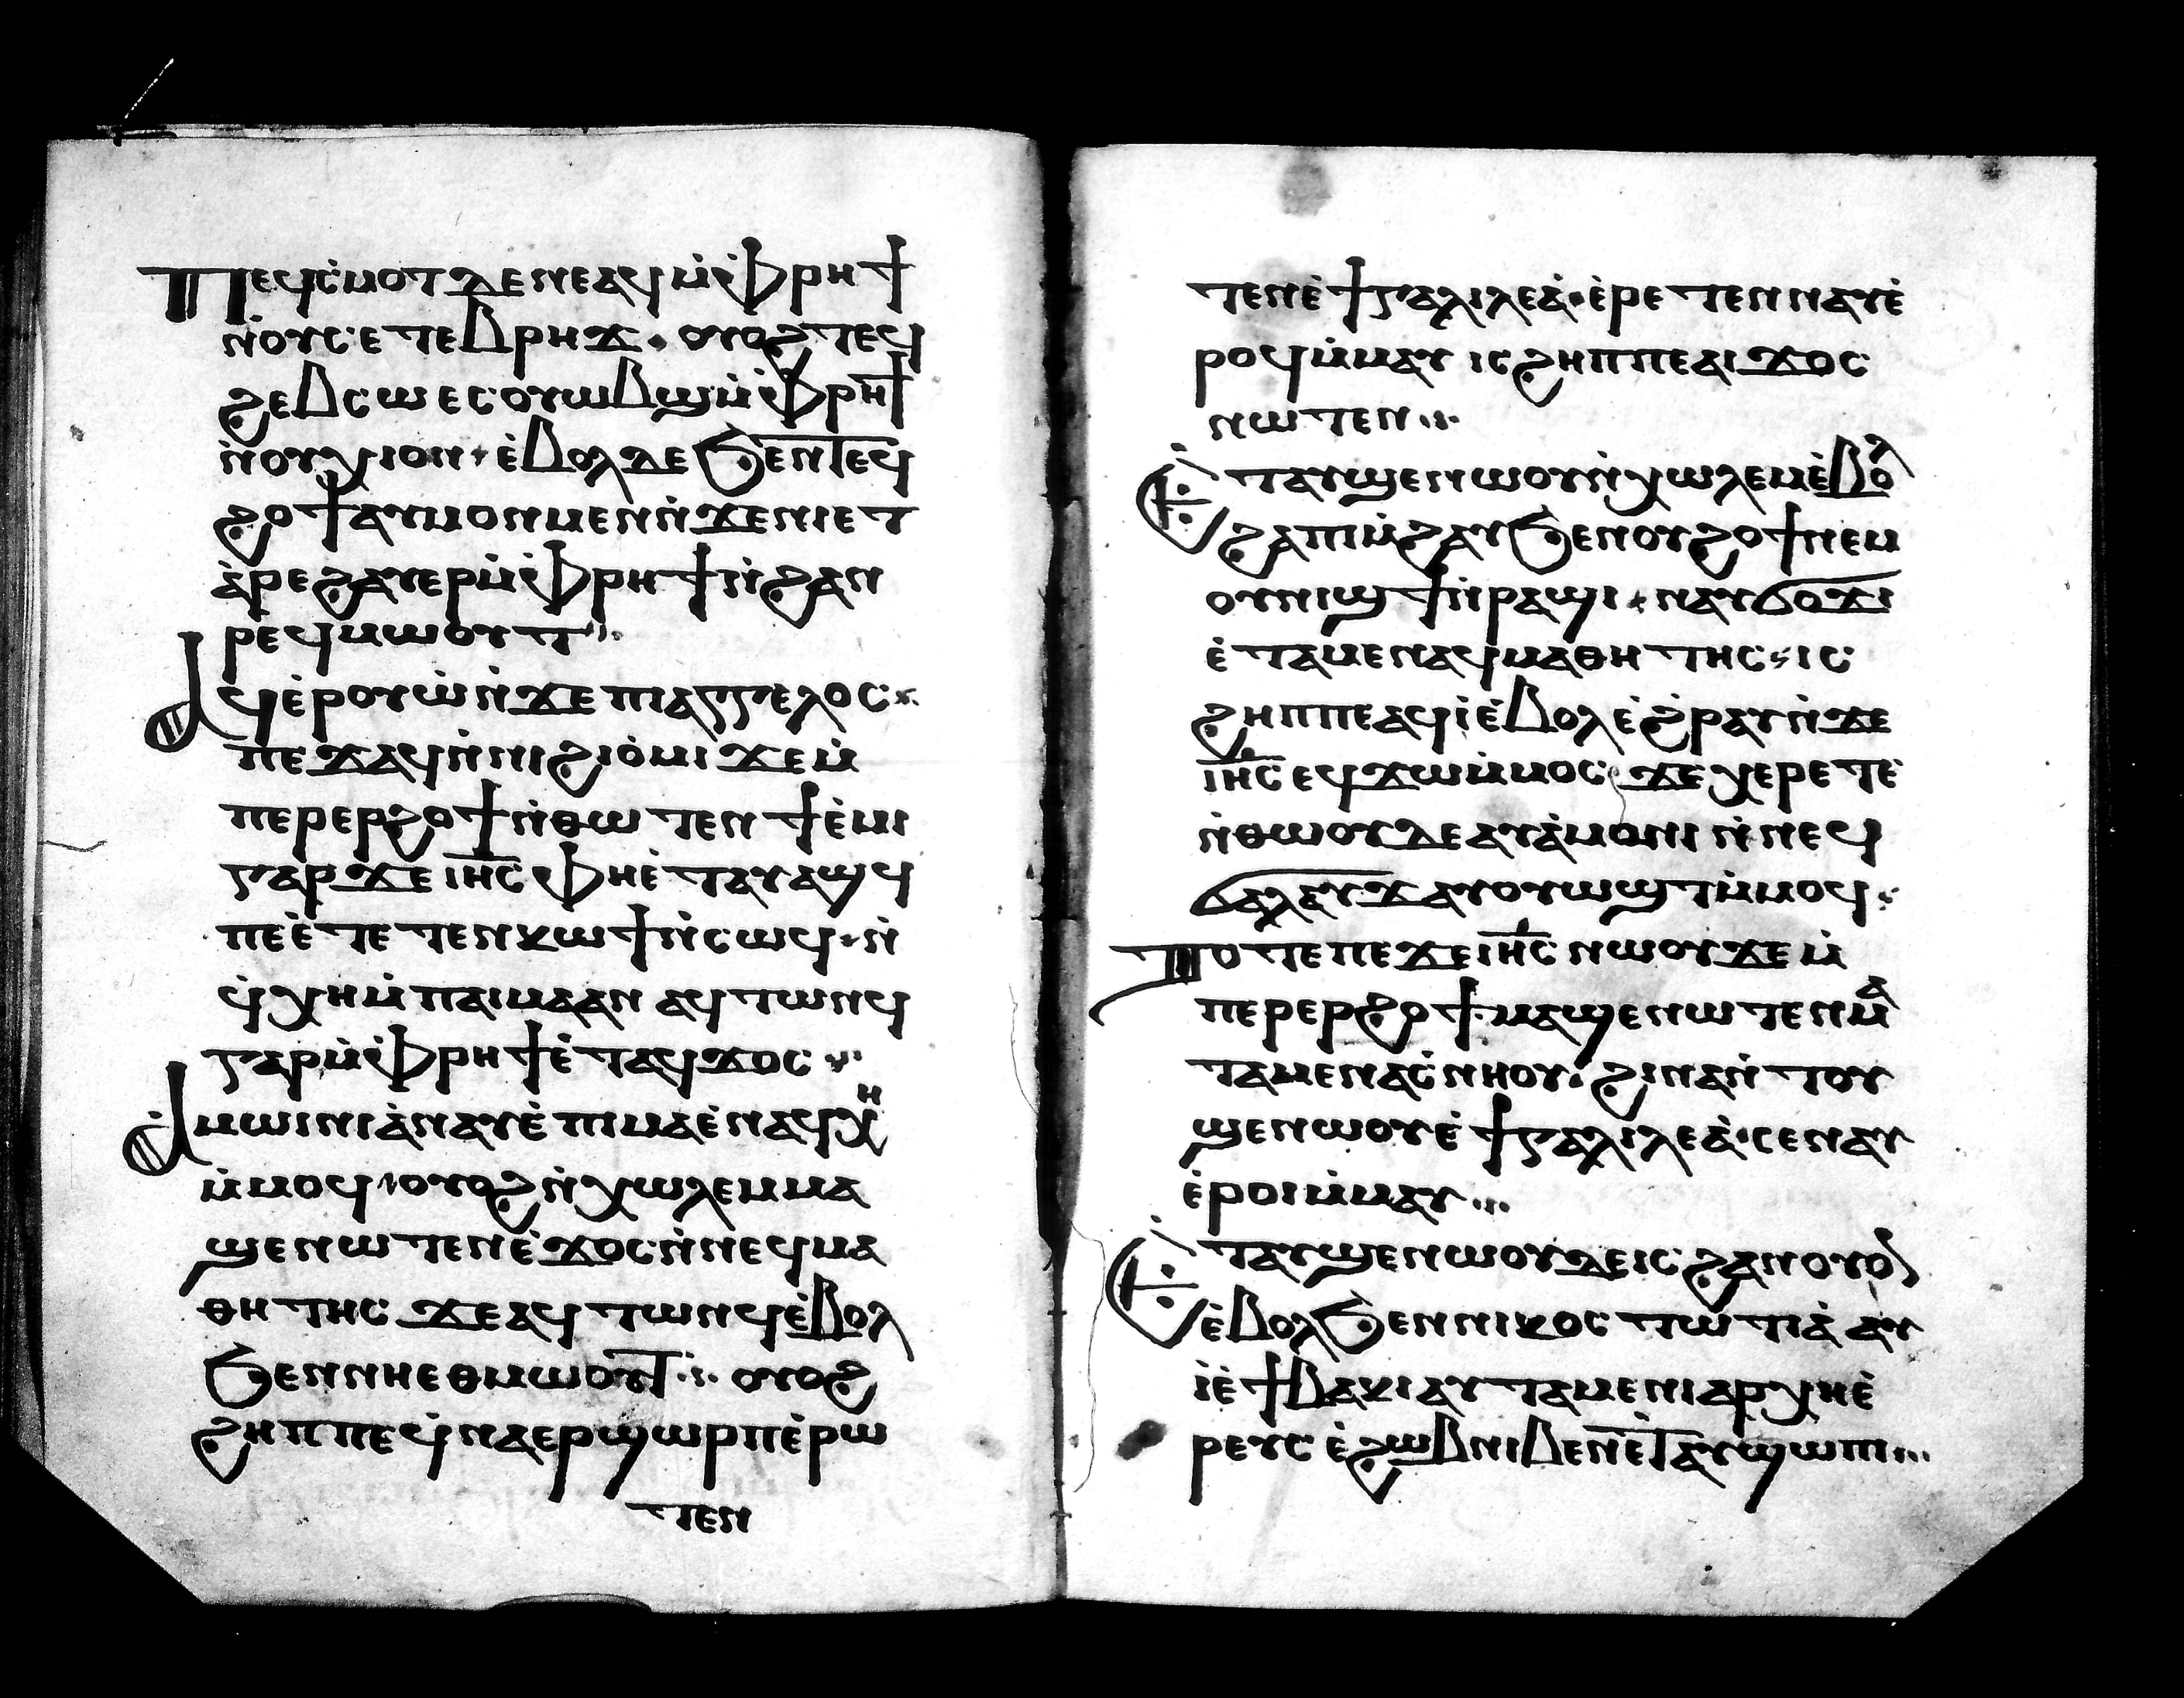 Ⲡⲉϥⲥ̇ⲙⲟⲧ ⲇⲉ ⲛⲉ ⲁϥ ⲙ̇ⲫ̇ⲣⲏϯ
ⲛ̇ⲟⲩⲥⲉⲧⲉⲃⲣⲏϫ · ⲟⲩⲟϩ ⲧⲉϥ
ϩⲉⲃⲥⲱ ⲉⲥⲟⲩⲱⲃϣ ⲙ̇ⲫ̇ⲣⲏϯ
ⲛ̇ⲟⲩⲭⲓⲟⲛ · ⲉ̇ⲃⲟⲗ ⲇⲉ ϧⲉⲛ ⲧⲉϥ
ϩⲟϯ ⲁⲩⲙⲟⲛⲙⲉⲛ ⲛ̇ϫⲉ ⲛⲓⲉⲧ
ⲁ̇ⲣⲉϩ ⲁⲩⲉⲣ ⲙ̇ⲫ̇ⲣⲏϯ ⲛ̇ϩⲁⲛ
ⲣⲉϥⲙⲱⲟⲩⲧ ⁘
Ⲁϥⲉ̇ⲣⲟⲩⲱ̇ ⲛ̇ϫⲉ ⲡⲓⲁⲅⲅⲉⲗⲟⲥ ⁘
ⲡⲉϫⲁϥ ⲛ̇ⲛⲓϩⲓⲟ̇ⲙⲓ ϫⲉ ⲙ̇
ⲡⲉⲣⲉⲣϩⲟϯ ⲛ̇ⲑⲱⲧⲉⲛ ϯⲉ̇ⲙⲓ
ⲅⲁⲣ ϫⲉ ⲓⲏ̅ⲥ̅ ⲫⲏⲉ̇ⲧⲁⲩⲁϣϥ
ⲡⲉ ⲉ̇ⲧⲉⲧⲉⲛⲕⲱϯ ⲛ̇ⲥⲱϥ · ⲛ̇
ϥ̇ⲭⲏ ⲙ̇ⲡⲁⲓⲙⲁ ⲁⲛ ⲁϥⲧⲱⲛϥ
ⲅⲁⲣ ⲙ̇ⲫ̇ⲣⲏϯ ⲉ̇ⲧⲁϥϫⲟⲥ ⁘
Ⲁⲙⲱⲓⲛⲓ ⲁ̇ⲛⲁⲩ ⲉ̇ⲡⲓⲙⲁ ⲉ̇ⲛⲁϥⲭⲏ
ⲙ̇ⲙⲟϥ · ⲟⲩⲟϩ ⲛ̇ⲭⲱⲗⲉⲙ ⲙⲁ
ϣⲉⲛⲱⲧⲉⲛ ⲉ̇ϫⲟⲥ ⲛ̇ⲛⲉϥⲙⲁ
ⲑⲏⲧⲏⲥ ϫⲉ ⲁϥⲧⲱⲛϥ ⲉ̇ⲃⲟⲗ
ϧⲉⲛ ⲛⲏⲉⲑⲙⲱⲟⲩⲧ ⁘ ⲟⲩⲟϩ
ϩⲏⲡⲡⲉ ϥ̇ⲛⲁⲉⲣϣⲱⲣⲡ ⲉ̇ⲣⲱ
ⲧⲉⲛ
ⲧⲉⲛ ⲉ̇ϯⲅⲁⲗⲓⲗⲉⲁ̇ · ⲉ̇ⲣⲉⲧⲉⲛⲛⲁⲩ ⲉ̇
ⲣⲟϥ ⲙ̇ⲙⲁⲩ ⲓⲥ ϩⲏⲡⲡⲉ ⲁⲓϫⲟⲥ
ⲛⲱⲧⲉⲛ ⁘
Ⲉ̇ⲧⲁⲩϣⲉⲛⲱⲟⲩ ⲛ̇ⲭⲱⲗⲉⲙ ⲉ̇ⲃⲟⲗ
ϩⲁ ⲡⲓⲙ̇ϩⲁⲩ ϧⲉⲛ ⲟⲩϩⲟϯ ⲛⲉⲙ
ⲟⲩⲛⲓϣϯ ⲛ̇ⲣⲁϣⲓ · ⲛⲁⲩϭⲟϫⲓ
ⲉ̇ⲧⲁⲙⲉ ⲛⲁϥⲙⲁⲑⲏⲧⲏⲥ · ⲓⲥ
ϩⲏⲡⲡⲉ ⲁϥⲓ̇ ⲉ̇ⲃⲟⲗ ⲉ̇ϩ̇ⲣⲁⲩ ⲛ̇ϫⲉ
ⲓⲏ̅ⲥ̅ ⲉϥϫⲱ ⲙ̇ⲙⲟⲥ ϫⲉ ⲭⲉⲣⲉⲧⲉ
ⲛ̇ⲑⲱⲟⲩ ⲇⲉ ⲁⲩⲁ̇ⲙⲟⲛⲓ ⲛ̇ⲛⲉϥ
ϭⲁⲗⲁⲩϫ ⲁⲩⲟⲩⲱϣⲧ ⲙ̇ⲙⲟϥ ⁘
Ⲧⲟⲧⲉ ⲡⲉϫⲉ ⲓⲏ̅ⲥ̅ ⲛⲱⲟⲩ ϫⲉ ⲙ̇
ⲡⲉⲣⲉⲣϩⲟϯ · ⲙⲁϣⲉⲛⲱⲧⲉⲛ ⲙⲁ
ⲧⲁⲙⲉ ⲛⲁⲥ̇ⲛⲏⲟⲩ · ϩⲓⲛⲁ ⲛ̇ⲧⲟⲩ
ϣⲉⲛⲱⲟⲩ ⲉ̇ϯⲅⲁⲗⲓⲗⲉⲁ̇ · ⲥⲉⲛⲁⲩ
ⲉ̇ⲣⲟⲓ ⲙ̇ⲙⲁⲩ ⁘
Ⲉ̇ⲧⲁⲩϣⲉⲛⲱⲟⲩ ⲇⲉ ⲓⲥ ϩⲁⲛⲟⲩⲟⲛ
ⲉ̇ⲃⲟⲗ ϧⲉⲛ ⲛⲓⲕⲟⲥⲧⲱⲧⲓⲁ̇ ⲁⲩ
ⲓ̇ ⲉ̇ϯⲃⲁⲕⲓ ⲁⲩⲧⲁⲙⲉ ⲛⲓⲁⲣⲭⲏⲉ̇
ⲣⲉⲩⲥ ⲉ̇ϩⲱⲃ ⲛⲓⲃⲉⲛ ⲉ̇ⲧⲁⲩϣⲱⲡⲓ ⁘